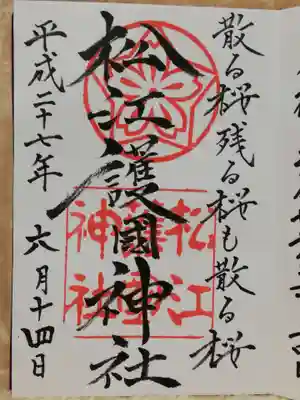 散る桜、残る桜も散る桜
松江護國神社
松江
護國
神社
平成二十七年 六月十四日